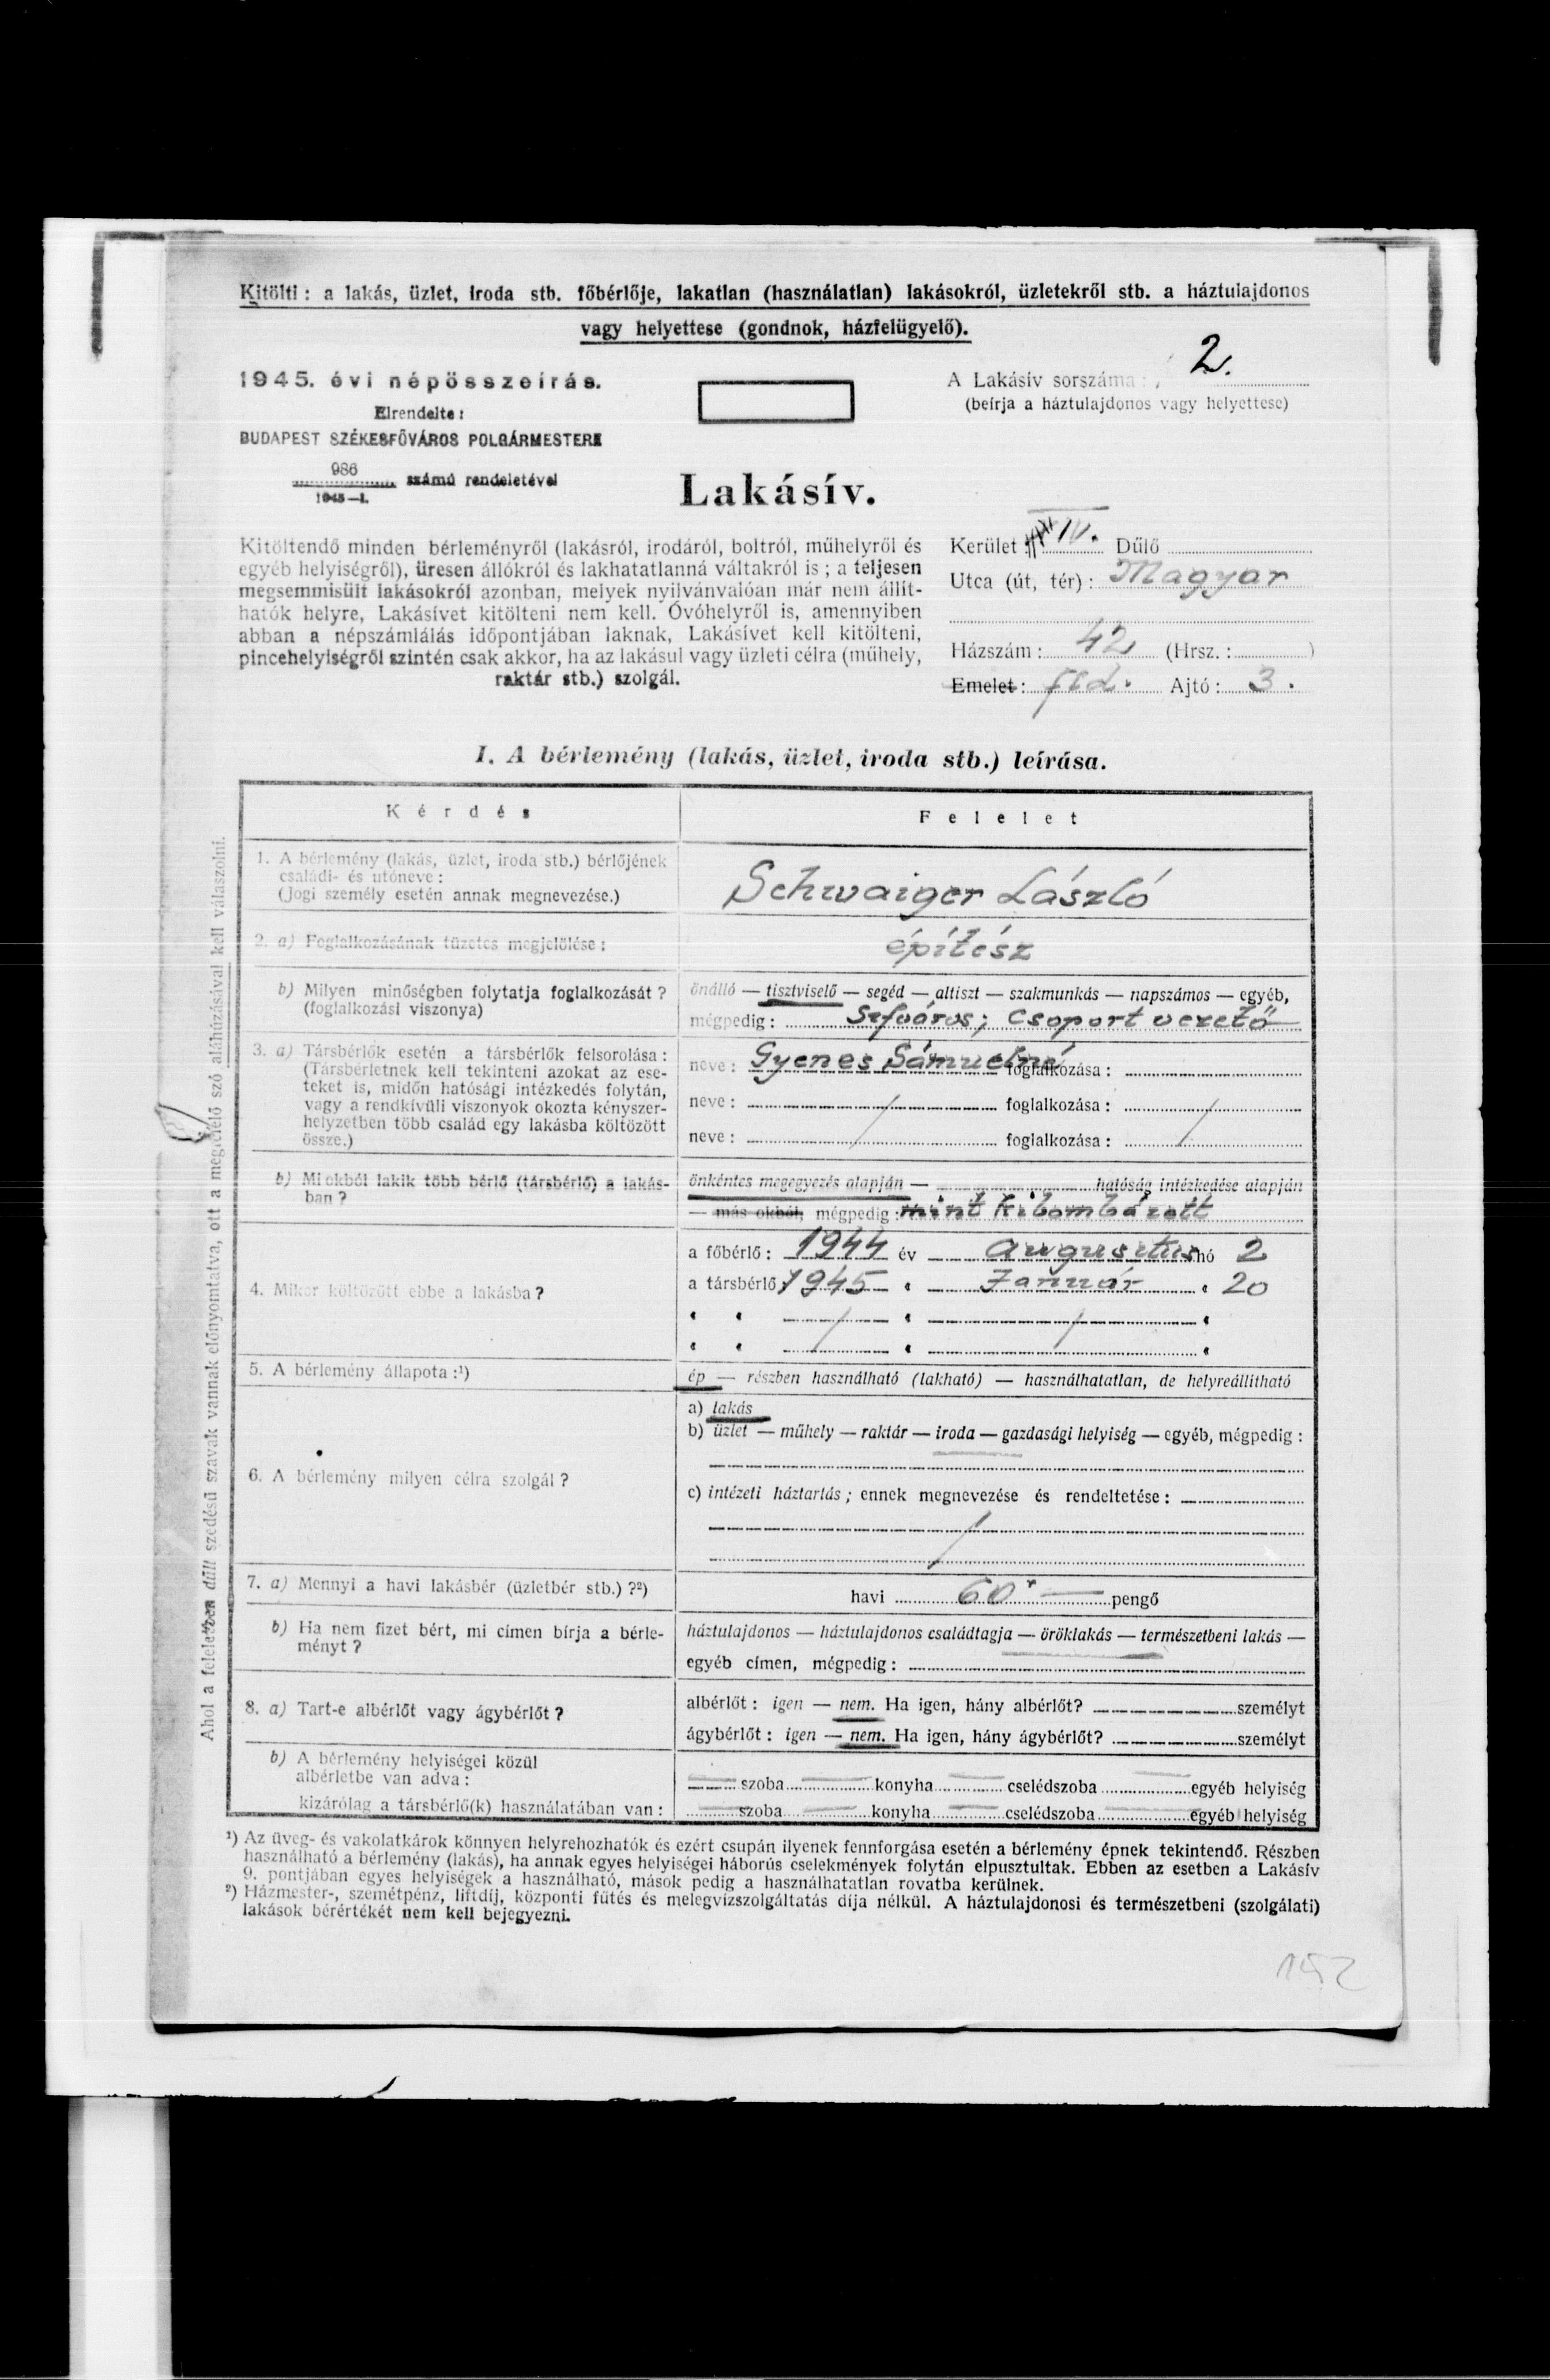 Kitölti: a lakás, üzlet, iroda stb. főbérlője, lakatlan (használatlan) lakásokról, üzletekről stb. a háztulajdonos
vagy helyettese (gondnok, házfelügyelő).
1945. évi népösszeírás.
Elrendelte:
BUDAPEST SZÉKESFŐVÁROS POLGÁRMESTERE
986
1945—I. számú rendeletével
A Lakásív sorszáma: 2.
(beírja a háztulajdonos vagy helyettese)
Lakásív.
Kitöltendő minden bérleményről (lakásról, irodáról, boltról, műhelyről és
egyéb helyiségről), üresen állókról és lakhatatlanná váltakról is; a teljesen
megsemmisült lakásokról azonban, melyek nyilvánvalóan már nem állít-
hatók helyre, Lakásívet kitölteni nem kell. Óvóhelyről is, amennyiben
abban a népszámlálás időpontjában laknak, Lakásívet kell kitölteni,
pincehelyiségről szintén csak akkor, ha az lakásul vagy üzleti célra (műhely,
raktár stb.) szolgál.
Kerület: IV. Dűlő
Utca (út, tér): Magyar
Házszám: 42 (Hrsz.: )
Emelet: fld. Ajtó: 3.
I. A bérlemény (lakás, üzlet, iroda stb.) leírása.
Kérdés
Felelet
1. A bérlemény (lakás, üzlet, iroda stb.) bérlőjének
családi- és utóneve:
(Jogi személy esetén annak megnevezése.)
Schwaiger László
2. a) Foglalkozásának tüzetes megjelölése:
építész
b) Milyen minőségben folytatja foglalkozását?
(foglalkozási viszonya)
önálló — tisztviselő — segéd — altiszt — szakmunkás — napszámos — egyéb,
mégpedig: Szfváros; Csoport vezető
3. a) Társbérlők esetén a társbérlők felsorolása:
(Társbérletnek kell tekinteni azokat az ese-
teket is, midőn hatósági intézkedés folytán,
vagy a rendkívüli viszonyok okozta kényszer-
helyzetben több család egy lakásba költözött
össze.)
neve: Gyenes Sámuelné foglalkozása:
neve: / foglalkozása: /
neve: / foglalkozása: /
b) Mi okból lakik több bérlő (társbérlő) a lakás-
ban?
önkéntes megegyezés alapján — hatóság intézkedése alapján
— más okból, mégpedig: mint kibombázott
4. Mikor költözött ebbe a lakásba?
a főbérlő: 1944 év augusztus hó 2
a társbérlő 1945 " Január " 20
" " / " / "
" " / " / "
5. A bérlemény állapota:¹)
ép — részben használható (lakható) — használhatatlan, de helyreállítható
6. A bérlemény milyen célra szolgál?
a) lakás
b) üzlet — műhely — raktár — iroda — gazdasági helyiség — egyéb, mégpedig:
c) intézeti háztartás; ennek megnevezése és rendeltetése:
/
7. a) Mennyi a havi lakásbér (üzletbér stb.)?²)
havi 60·— pengő
b) Ha nem fizet bért, mi címen bírja a bérle-
ményt?
háztulajdonos — háztulajdonos családtagja — öröklakás — természetbeni lakás —
egyéb címen, mégpedig:
8. a) Tart-e albérlőt vagy ágybérlőt?
albérlőt: igen — nem. Ha igen, hány albérlőt? személyt
ágybérlőt: igen — nem. Ha igen, hány ágybérlőt? személyt
b) A bérlemény helyiségei közül
albérletbe van adva:
— szoba — konyha — cselédszoba — egyéb helyiség
kizárólag a társbérlő(k) használatában van:
— szoba — konyha — cselédszoba — egyéb helyiség
¹) Az üveg- és vakolatkárok könnyen helyrehozhatók és ezért csupán ilyenek fennforgása esetén a bérlemény épnek tekintendő. Részben
használható a bérlemény (lakás), ha annak egyes helyiségei háborús cselekmények folytán elpusztultak. Ebben az esetben a Lakásív
9. pontjában egyes helyiségek a használható, mások pedig a használhatatlan rovatba kerülnek.
²) Házmester-, szemétpénz, liftdíj, központi fűtés és melegvízszolgáltatás díja nélkül. A háztulajdonosi és természetbeni (szolgálati)
lakások bérértékét nem kell bejegyezni.
Ahol a feleletben dűlt szedésű szavak vannak előnyomtatva, ott a megfelelő szó aláhúzásával kell válaszolni.